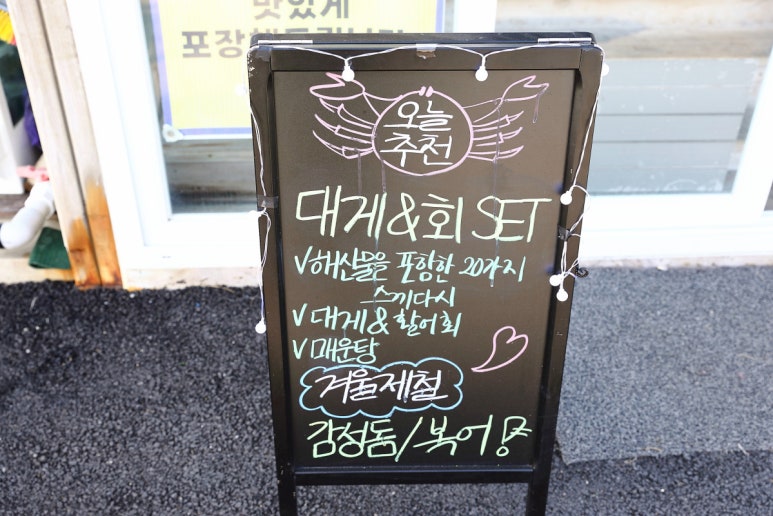 맛있게
포장해드립니다
오늘
추천
대게&회 SET
V해산물을 포함한 20가지
스끼다시
V 대게&활어회
V 매운탕
겨울제철
감성돔/복어!